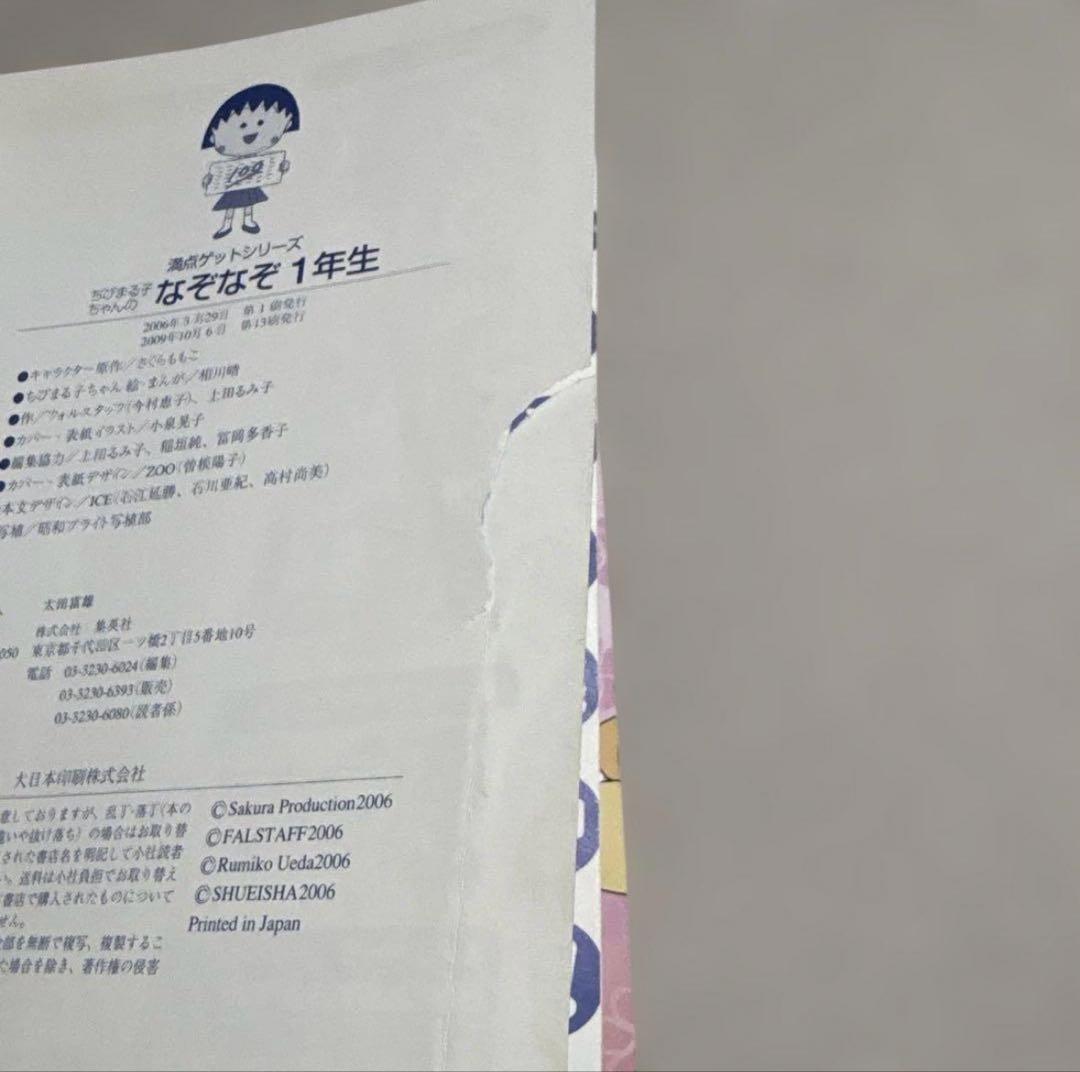 100
満点ゲットシリーズ
ちびまる子ちゃんの なぞなぞ1年生
2006年3月29日 第1刷発行
2009年10月6日 第13刷発行
●キャラクター原作/さくらももこ
●ちびまる子ちゃん 絵・まんが/相川晴
●作/フォルスタッフ(今村恵子)、上田るみ子
●カバー・表紙イラスト/小泉晃子
●編集協力/上田るみ子、稲垣純、冨岡多香子
●カバー・表紙デザイン/ZOO(曽根陽子)
本文デザイン/ICE(石江延勝、石川亜紀、高村尚美)
写植/昭和ブライト写植部
太田富雄
株式会社 集英社
050 東京都千代田区一ツ橋2丁目5番地10号
電話 03-3230-6024(編集)
03-3230-6393(販売)
03-3230-6080(読者係)
大日本印刷株式会社
意しておりますが、乱丁・落丁(本の
違いや抜け落ち)の場合はお取り替
された書店名を明記して小社読者
い。送料は小社負担でお取り替え
書店で購入されたものについて
せん。
全部を無断で複写、複製するこ
た場合を除き、著作権の侵害
©Sakura Production2006
©FALSTAFF2006
©Rumiko Ueda2006
©SHUEISHA2006
Printed in Japan